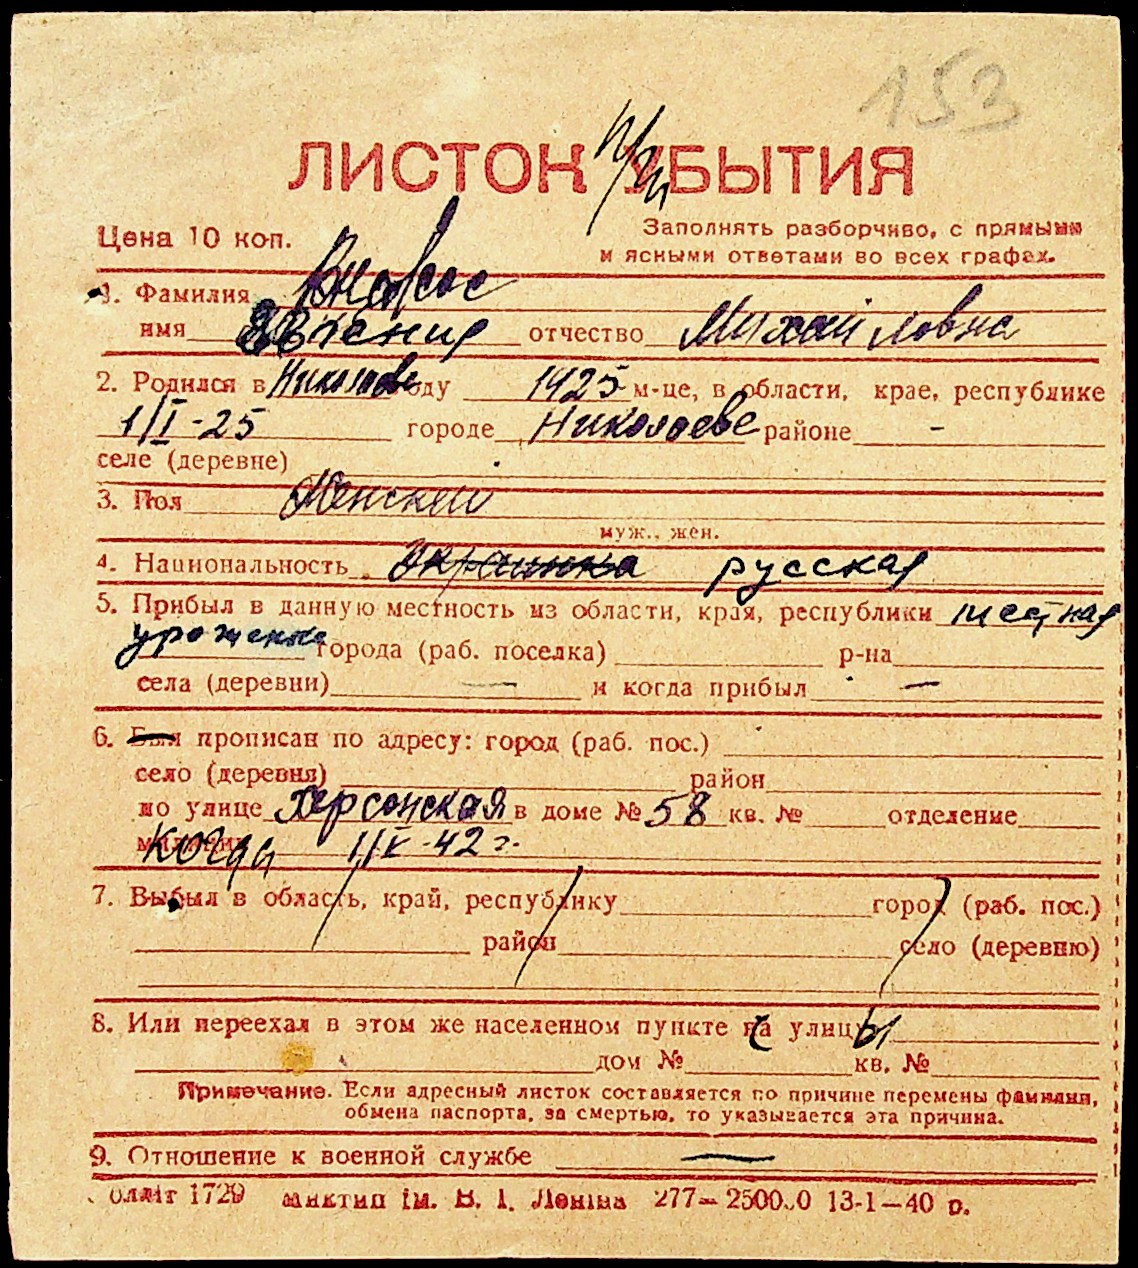 153
ЛИСТОК УБЫТИЯ
Цена 10 коп.
Заполнять разборчиво, с прямыми
и ясными ответами во всех графах.
1. Фамилия
имя Евгения отчество Михайловна
2. Родился в Николаеве году 1925 м-це, в области, крае, республике
1/I-25 городе Николаеве районе -
селе (деревне)
3. Пол Женский
муж., жен.
4. Национальность украинка русская
5. Прибыл в данную местность из области, края, республики местная
уроженка города (раб. поселка) р-на
села (деревни) — и когда прибыл —
6. Был прописан по адресу: город (раб. пос.)
село (деревня) район
по улице Херсонская в доме № 58 кв. № отделение
милиции когда 1/V-42 г.
7. Выбыл в область, край, республику город (раб. пос.)
район село (деревню)
8. Или переехал в этом же населенном пункте с улицы
дом № кв. №
Примечание. Если адресный листок составляется по причине перемены фамилии,
обмена паспорта, за смертью, то указывается эта причина.
9. Отношение к военной службе —
1729 ім. В. І. Леніна 277— 13-1—40 р.